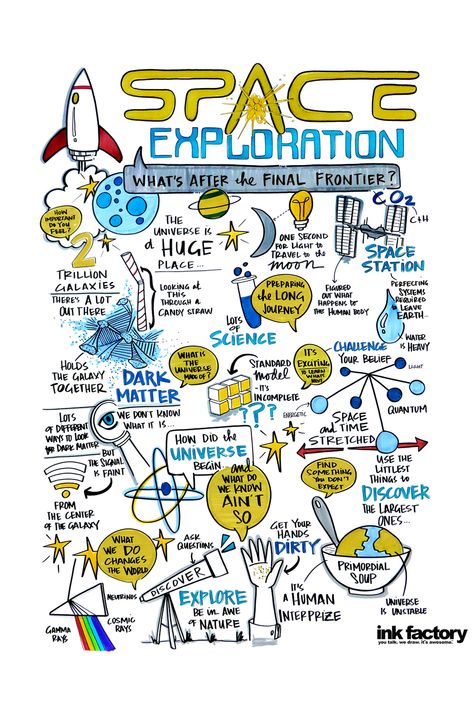 SPACE
EXPLORATION
WHAT'S AFTER the FINAL FRONTIER?
HOW
IMPORTANT
DO YOU
FEEL?
2
TRILLION
GALAXIES
THERE'S A LOT
OUT THERE
THE
UNIVERSE IS
a HUGE
PLACE...
LOOKING AT
THIS
THROUGH A
CANDY STRAW
ONE SECOND
FOR LIGHT TO
TRAVEL TO the
moon
CO2
C+H
SPACE
STATION
FIGURED OUT WHAT
HAPPENS TO
THE HUMAN BODY
PERFECTING
SYSTEMS
REQUIRED
to LEAVE
EARTH
WATER
IS HEAVY
LOTS
OF
SCIENCE
PREPARING
the LONG
JOURNEY
HOLDS
THE GALAXY
TOGETHER
DARK
MATTER
WHAT IS
THE UNIVERSE
MADE OF?
STANDARD
model
IT'S
INCOMPLETE
???
IT'S
EXCITING
CHALLENGE
YOUR BELIEF
LIGHT
QUANTUM
ENERGETIC
SPACE
and TIME
STRETCHED
LOTS
OF DIFFERENT
WAYS TO LOOK
FOR DARK MATTER
WE DON'T KNOW
WHAT IT IS...
BUT
THE SIGNAL
IS FAINT
FROM
THE CENTER
OF the GALAXY
HOW DID the
UNIVERSE
BEGIN
and
WHAT DO
WE KNOW
AIN'T
SO
FIND
SOMETHING
YOU DON'T
EXPECT
USE THE
LITTLEST
THINGS to
DISCOVER
THE LARGEST
ONES...
WHAT
WE DO
CHANGES
THE WORLD
ASK
QUESTIONS
DISCOVER
EXPLORE
BE in AWE
of NATURE
GET YOUR
HANDS
DIRTY
IT'S
A HUMAN
INTERPRIZE
PRIMORDIAL
SOUP
UNIVERSE
IS UNSTABLE
NEUTRINOS
COSMIC
RAYS
GAMMA
RAYS
ink factory
you talk. we draw. it's awesome.